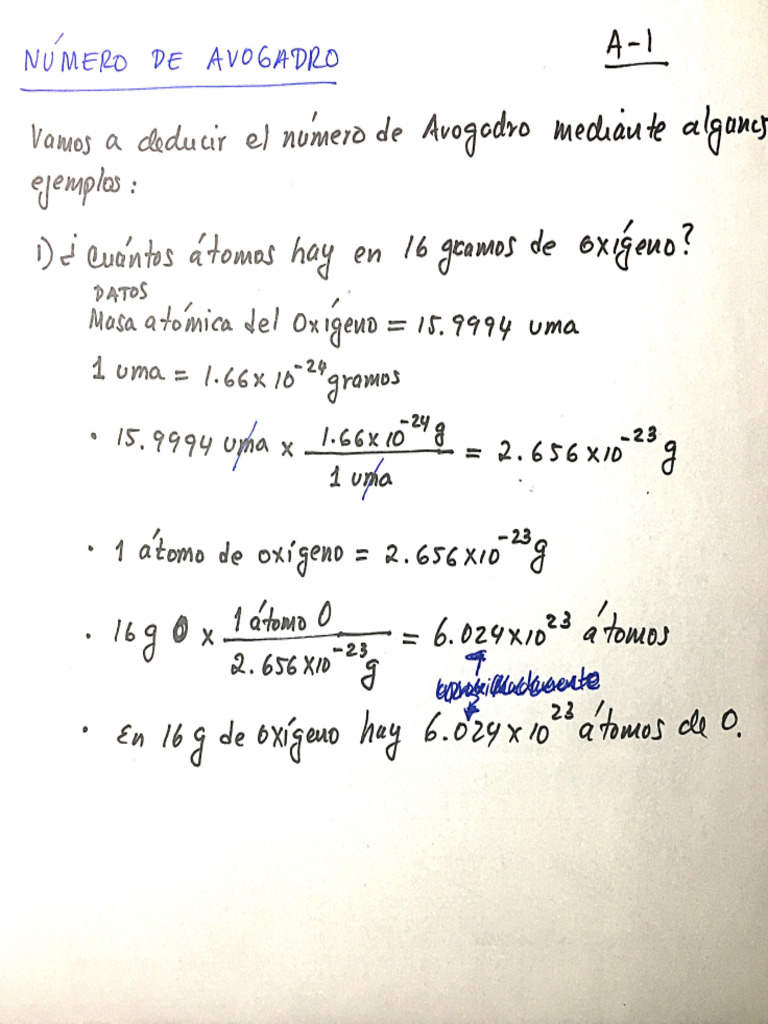 NÚMERO DE AVOGADRO
A-1
Vamos a deducir el número de Avogadro mediante algunos
ejemplos:
1) ¿Cuántos átomos hay en 16 gramos de oxígeno?
DATOS
Masa atómica del Oxígeno = 15.9994 uma
1 uma = 1.66 x 10⁻²⁴ gramos
• 15.9994 uma x 1.66 x 10⁻²⁴ g / 1 uma = 2.656 x 10⁻²³ g
• 1 átomo de oxígeno = 2.656 x 10⁻²³ g
• 16 g O x 1 átomo O / 2.656 x 10⁻²³ g = 6.024 x 10²³ átomos
• En 16 g de oxígeno hay 6.024 x 10²³ átomos de O.